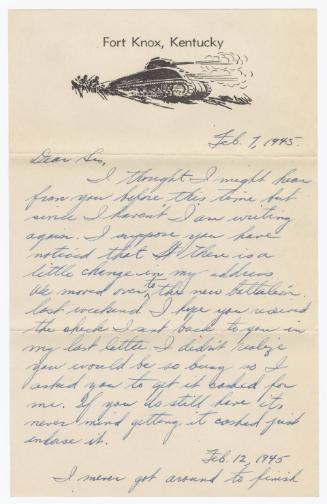 Fort Knox, Kentucky
Feb. 7, 1945.
Dear Sis,
I thought I might hear
from you before this time but
since I haven't I am writing
again. I suppose you have
noticed that there is a
little change in my address
We moved over to the new battalion
last weekend. I hope you received
the check I sent back to you in
my last letter. I didn't realize
you would be so busy so I
asked you to get it cashed for
me. If you do still have it,
never mind getting it cashed just
enclose it.
Feb. 12, 1945
I never got around to finish